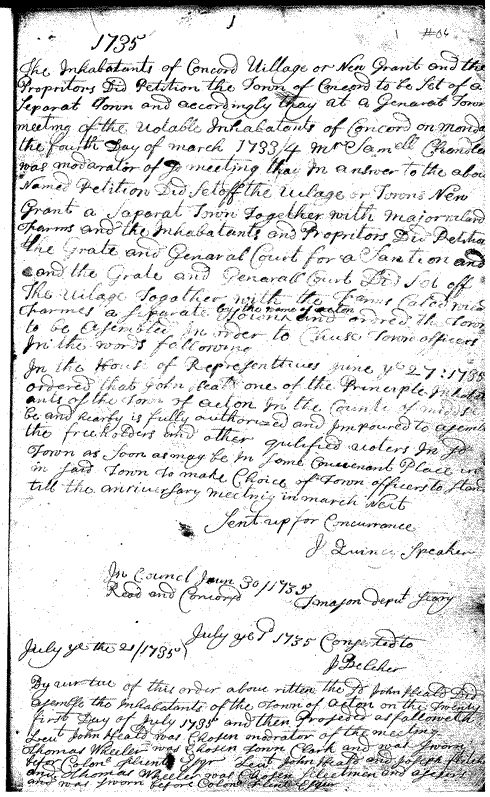 1
1735
The Inhabatants of Concord Village or New Grant and the
Propritors Did Petition the Town of Concord to be Set of a
Separat Town and accordingly thay at a Genarat Town
meeting of the Votable Inhabatants of Concord on monda
the fourth Day of march 1733/4 mr Samell Chandler
was moderator of sd meeting thay In answer to the abov
Named Petition Did Set off the Uilage or Towns New
Grant a Saparat Town Together with major
Farms and the Inhabatants and Propritors Did Petition
the Grate and Genaral Court for a Santion and
and the Grate and Generall Court Did Set off
The Vilage Togather with the Farms Caled
Farmes a Separate Town and ordered th Town
by the name of acton
to be Assembled in order to Chuse Town officers
In the words following
In the House of Representitives June ye 27: 1735
ordered that John Heald one of the Principle Inhabat
ants of the Town of acton In the County of midd
be and hearby is fully authorized and Impoured to asembl
the freeholders and other qulified voters In sd
Town as Soon as may be in Some Conuenant Place
in said Town to make Choice of Town officers to Stand
till the anniuersary meeting in march Next
Sent up for Concurrance
J Quincy Speaker
In Councel Jeun 30/1735
Read and Concord
S mason deput Scary
July ye 1735 Consented to
July ye the 21/1735
J Belcher
By uurtue of this order above ritten the sd John Heald Did
asemble the Inhabatants of the Town of acton on the Twenty
first Day of July 1735 and then Proseded as followeth
Lieut John Heald was Chosen modrator of the meeting
Thomas Wheeler was Chosen Town Clark and was Sworn
befor Colonl flient Esqr Leut John Heald and Joseph fletch
and Thomas Wheeler was Chosen Selectmen and asesers
and was sworn before Colonl flint Esquer